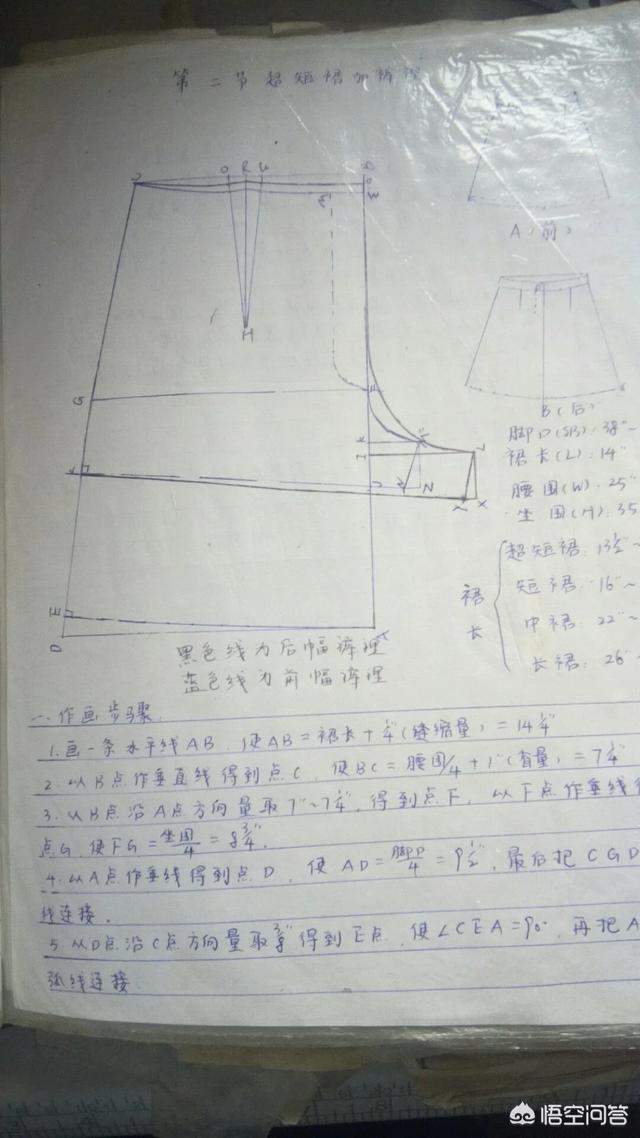 第二节 超短裙加裤
A(前)
B(后)
脚口(SB): 38"~
裙长(L): 14"
腰围(W): 25"
坐围(H): 35
裙长
超短裙: 13½"~
短裙: 16"~
中裙: 22"~
长裙: 26"~
黑色线为后幅裤理
蓝色线为前幅裤理
一.作画步骤.
1.画一条水平线AB,使AB=裙长+¼"(缝缩量)=14¼"
2.以B点作垂直线得到点C,使BC=腰围/4+1"(省量)=7¼"
3.以B点沿A点方向量取7"~7¼",得到点F,以F点作垂线
点G,使FG=坐围/4=8¾".
4.以A点作垂线得到点D,使AD=脚口/4=9½",最后把CGD
线连接.
5.从D点沿C点方向量取¾"得到E点,使∠CEA=90°,再把A
弧线连接
悟空问答